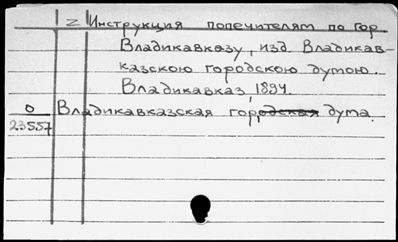 Z Инструкция попечителям по гор
Владикавказу, изд. Владикав-
казскою городскою думою.
Владикавказ, 1894.
О Владикавказская городская дума.
23557